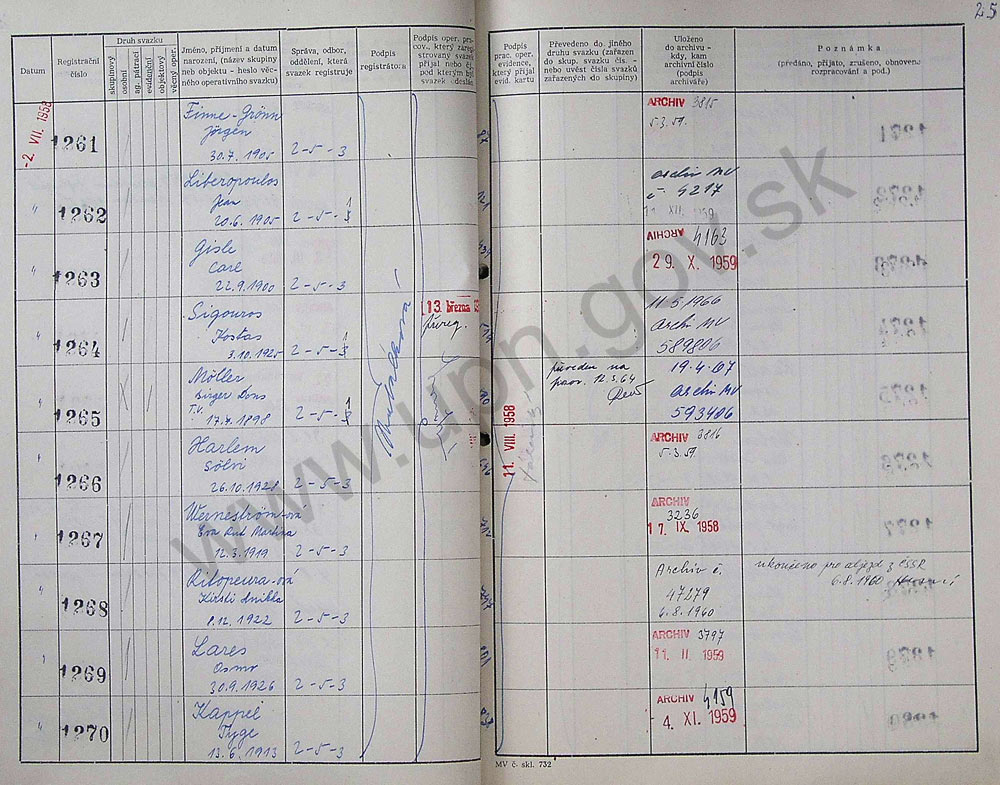 25
Datum
Registrační číslo
Druh svazku
skupinový
osobní
ag. pátrací
evidenční
objektový
věcný oper.
Jméno, příjmení a datum
narození, (název skupiny
neb objektu - heslo věc-
ného operativního svazku)
Správa, odbor,
oddělení, která
svazek registruje
Podpis
registrátora
Podpis oper. pra-
cov., který zareg-
strovaný svazek
přijal nebo čí.
pod kterým byl
svazek odeslán
Podpis
prac. oper.
evidence,
který přijal
evid. kartu
Převedeno do jiného
druhu svazku (zařazen
do skup. svazku čís. -
nebo uvést čísla svazků
zařazených do skupiny)
Uloženo
do archivu -
kdy, kam
archivní číslo
(podpis
archiváře)
Poznámka
(předáno, přijato, zrušeno, obnoveno
rozpracování a pod.)
-2. VII. 1958
1261
Finne-Grönn
Jörgen
30.7.1905
2-5-3
ARCHIV 3815
5.3.59.
1262
Liberopoulos
Jean
20.6.1905
2-5-3
archiv MV
č. 4217
XII. 1959
1263
Gisle
Carl
22.9.1900
2-5-3
ARCHIV 4163
29. X. 1959
1264
Sigouros
Kostas
3.10.1925
2-5-3
13. března
přereg.
11.5.1966
archiv MV
589806
1265
Möller
Birger Dons
T.V.
17.4.1898
2-5-3
11. VIII. 1958
převeden na
12.3.64
19.4.67
archiv MV
593406
1266
Harlem
Sölvi
26.10.1928
2-5-3
ARCHIV 3816
5.3.59.
1267
Werneström-ová
Eva Rut Martina
12.3.1919
2-5-3
ARCHIV
3236
17. IX. 1958
1268
Kirsti Annikka
8.12.1922
2-5-3
Archiv č.
47279
6.8.1960
ukončeno pro odjezd z ČSSR
6.8.1960
1269
Lares
Osmo
30.9.1926
2-5-3
ARCHIV 3797
11. II. 1959
1270
Kappel
Tyge
13.6.1913
2-5-3
ARCHIV 4159
4. XI. 1959
MV č. skl. 732
www.upn.gov.sk